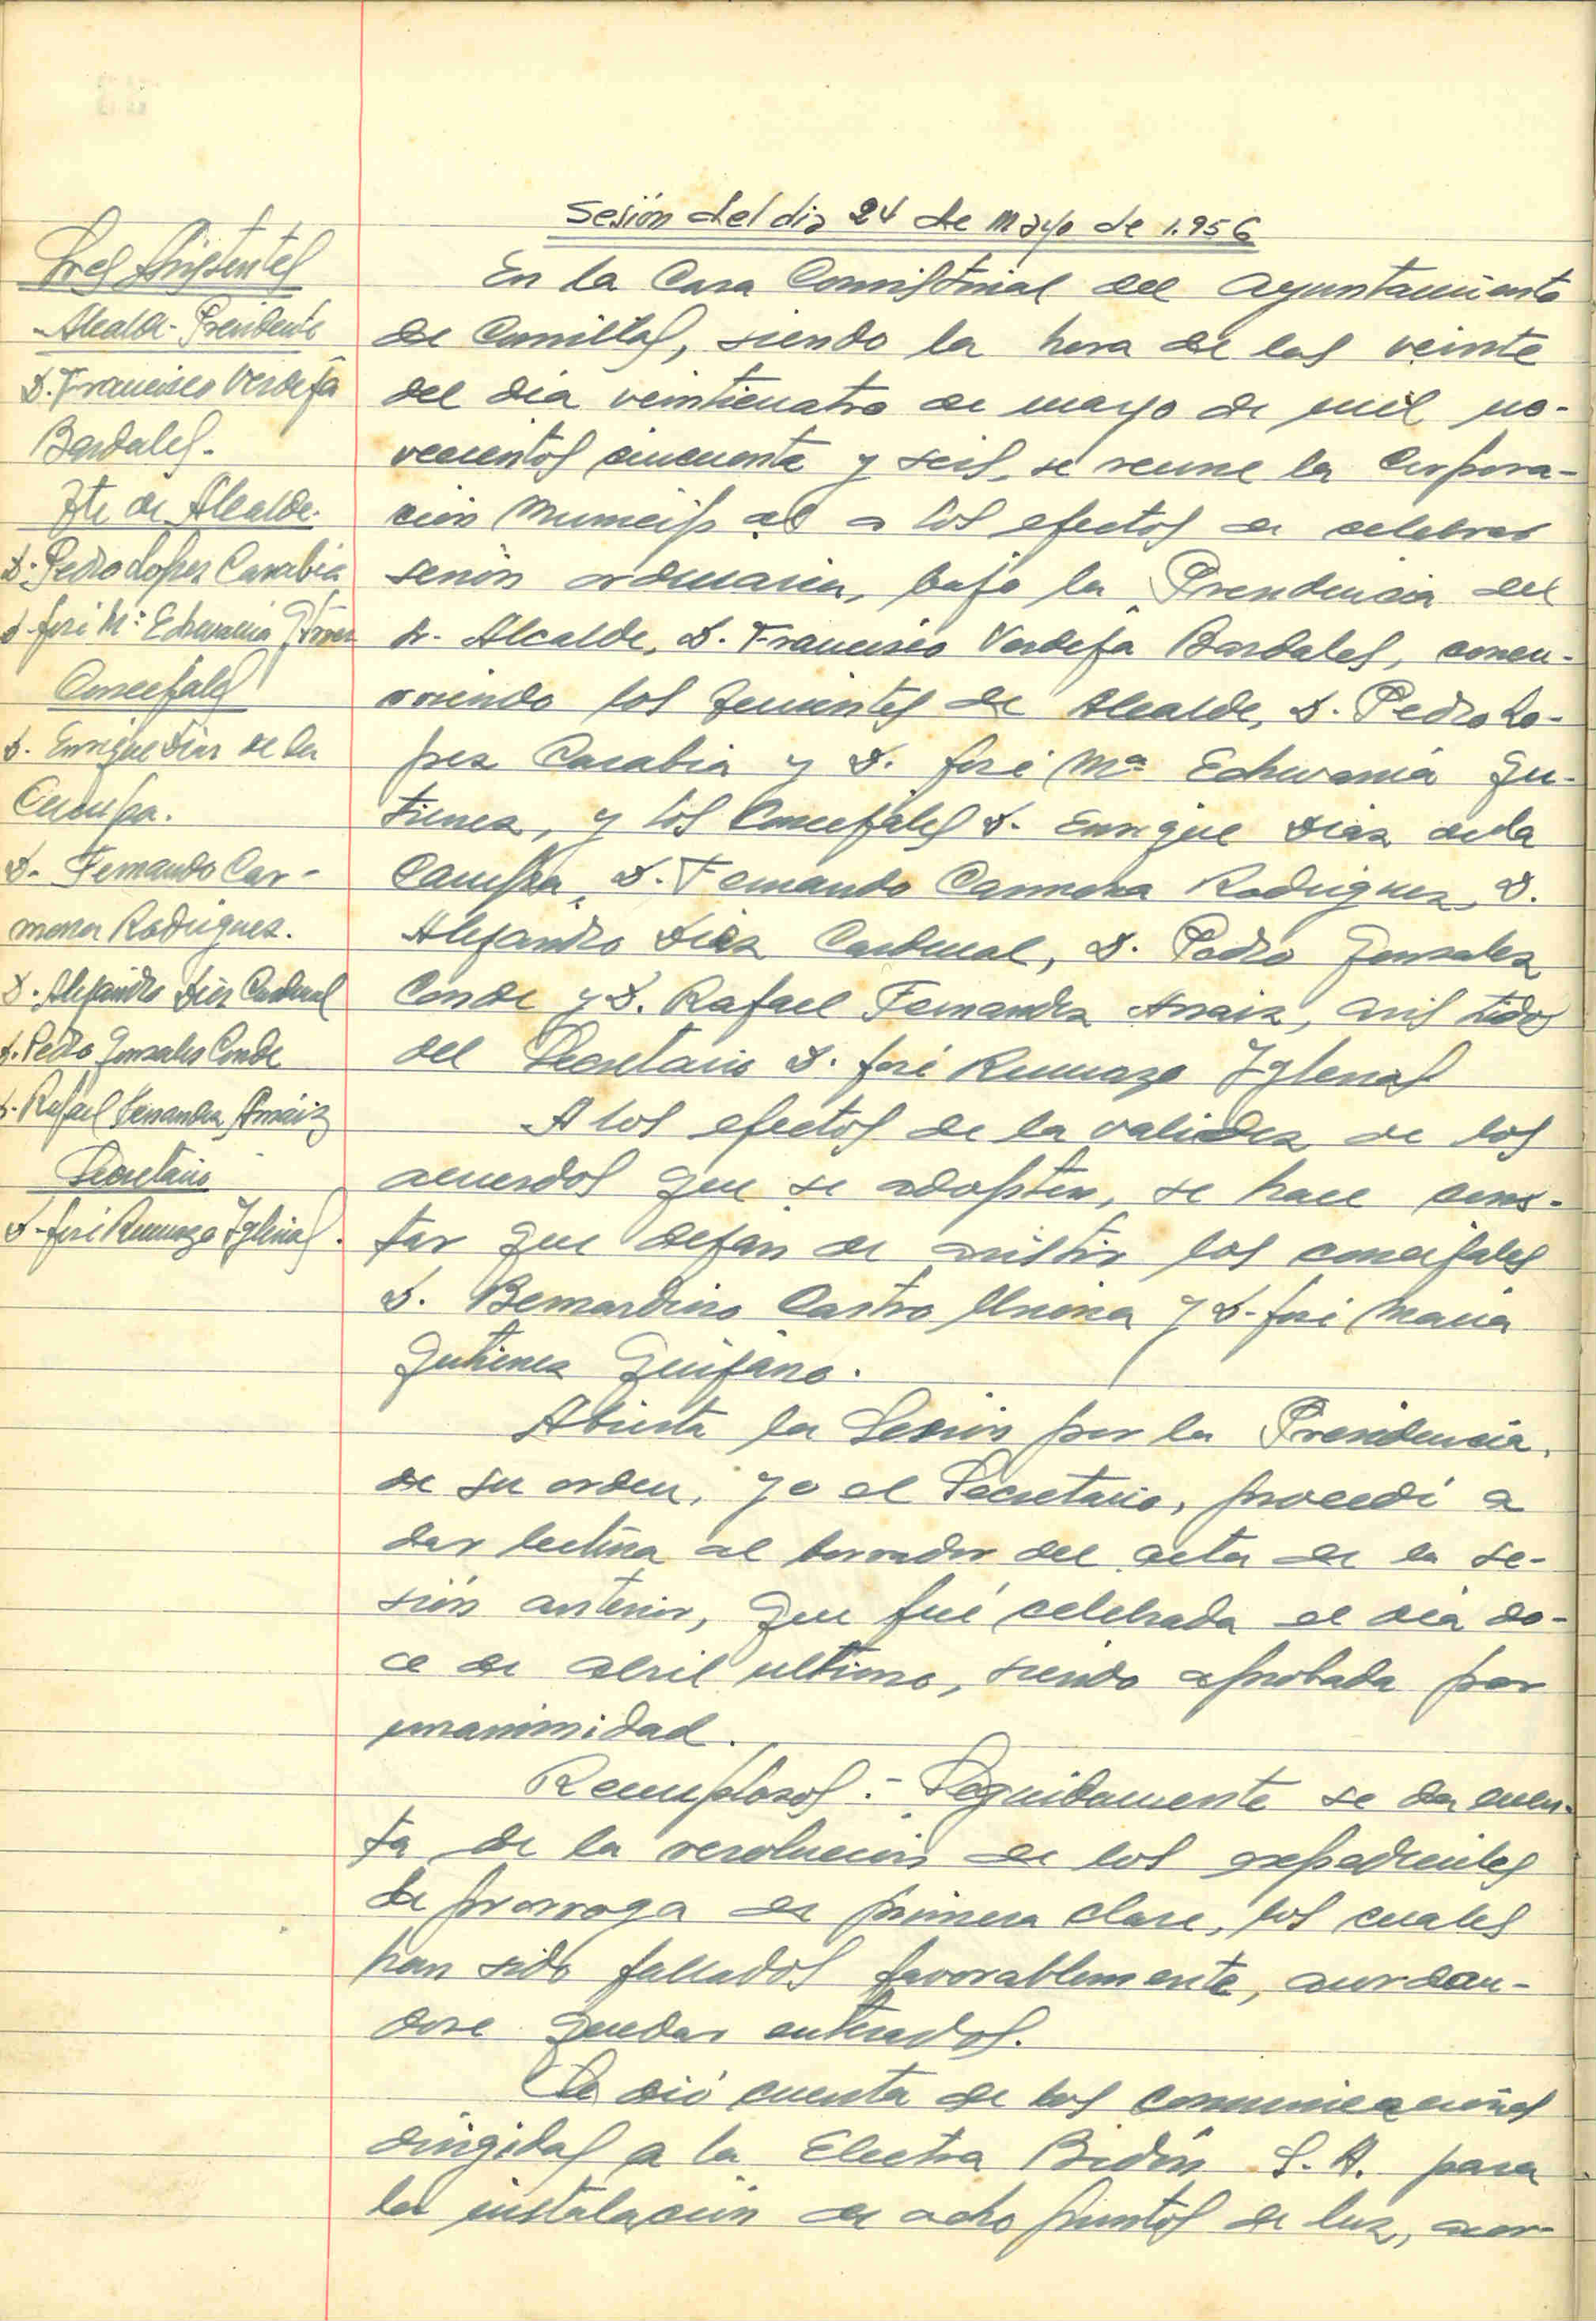 Sesión del dia 24 de mayo de 1.956
Sres Asistentes
Alcalde-Presidente
D. Francisco Verdeja
Bardales.
Tte de Alcalde.
D. Pedro Lopez Carabia
D. José Mª Echevarria Gtrrez
Concejales
D. Enrique Diaz de la
Campa.
D. Fernando Car-
mona Rodriguez.
D. Alejandro Diaz Cardenal
D. Pedro Gonzalez Conde
D. Rafael Fernandez Arnáiz
Secretario
D. José Remuzgo Iglesias.
En la Casa Consistorial del Ayuntamiento
de Comillas, siendo la hora de las veinte
del dia veinticuatro de mayo de mil no-
vecientos cincuenta y seis, se reune la Corpora-
ción Municipal a los efectos de celebrar
sesión ordinaria, bajo la Presidencia del
Sr. Alcalde, D. Francisco Verdeja Bardales, concu-
rriendo los Tenientes de Alcalde, D. Pedro Lo-
pez Carabia y D. José Mª Echevarria Gu-
tierrez, y los Concejales D. Enrique Diaz de la
Campa, D. Fernando Carmona Rodriguez, D.
Alejandro Diaz Cardenal, D. Pedro Gonzalez
Conde y D. Rafael Fernandez Arnaiz, asistidos
del Secretario D. José Remuzgo Iglesias
A los efectos de la validez de los
acuerdos que se adopten, se hace cons-
tar que dejan de asistir los concejales
D. Bernardino Castro y D. José Maria
Gutierrez Quijano.
Abierta la Sesión por la Presidencia,
de su orden, yo el Secretario, procedí a
dar lectura al borrador del acta de la se-
sión anterior, que fué celebrada el dia do-
ce de abril ultimo, siendo aprobada por
unanimidad.
Remplazos:- Seguidamente se da cuen-
ta de la resolución de los expedientes
de prorroga de primera clase, los cuales
han sido fallados favorablemente, acordan-
dose quedar enterados.
Se dió cuenta de las comunicaciones
dirigidas a la Electra Bedón S.A. para
la instalación de ocho puntos de luz, acor-